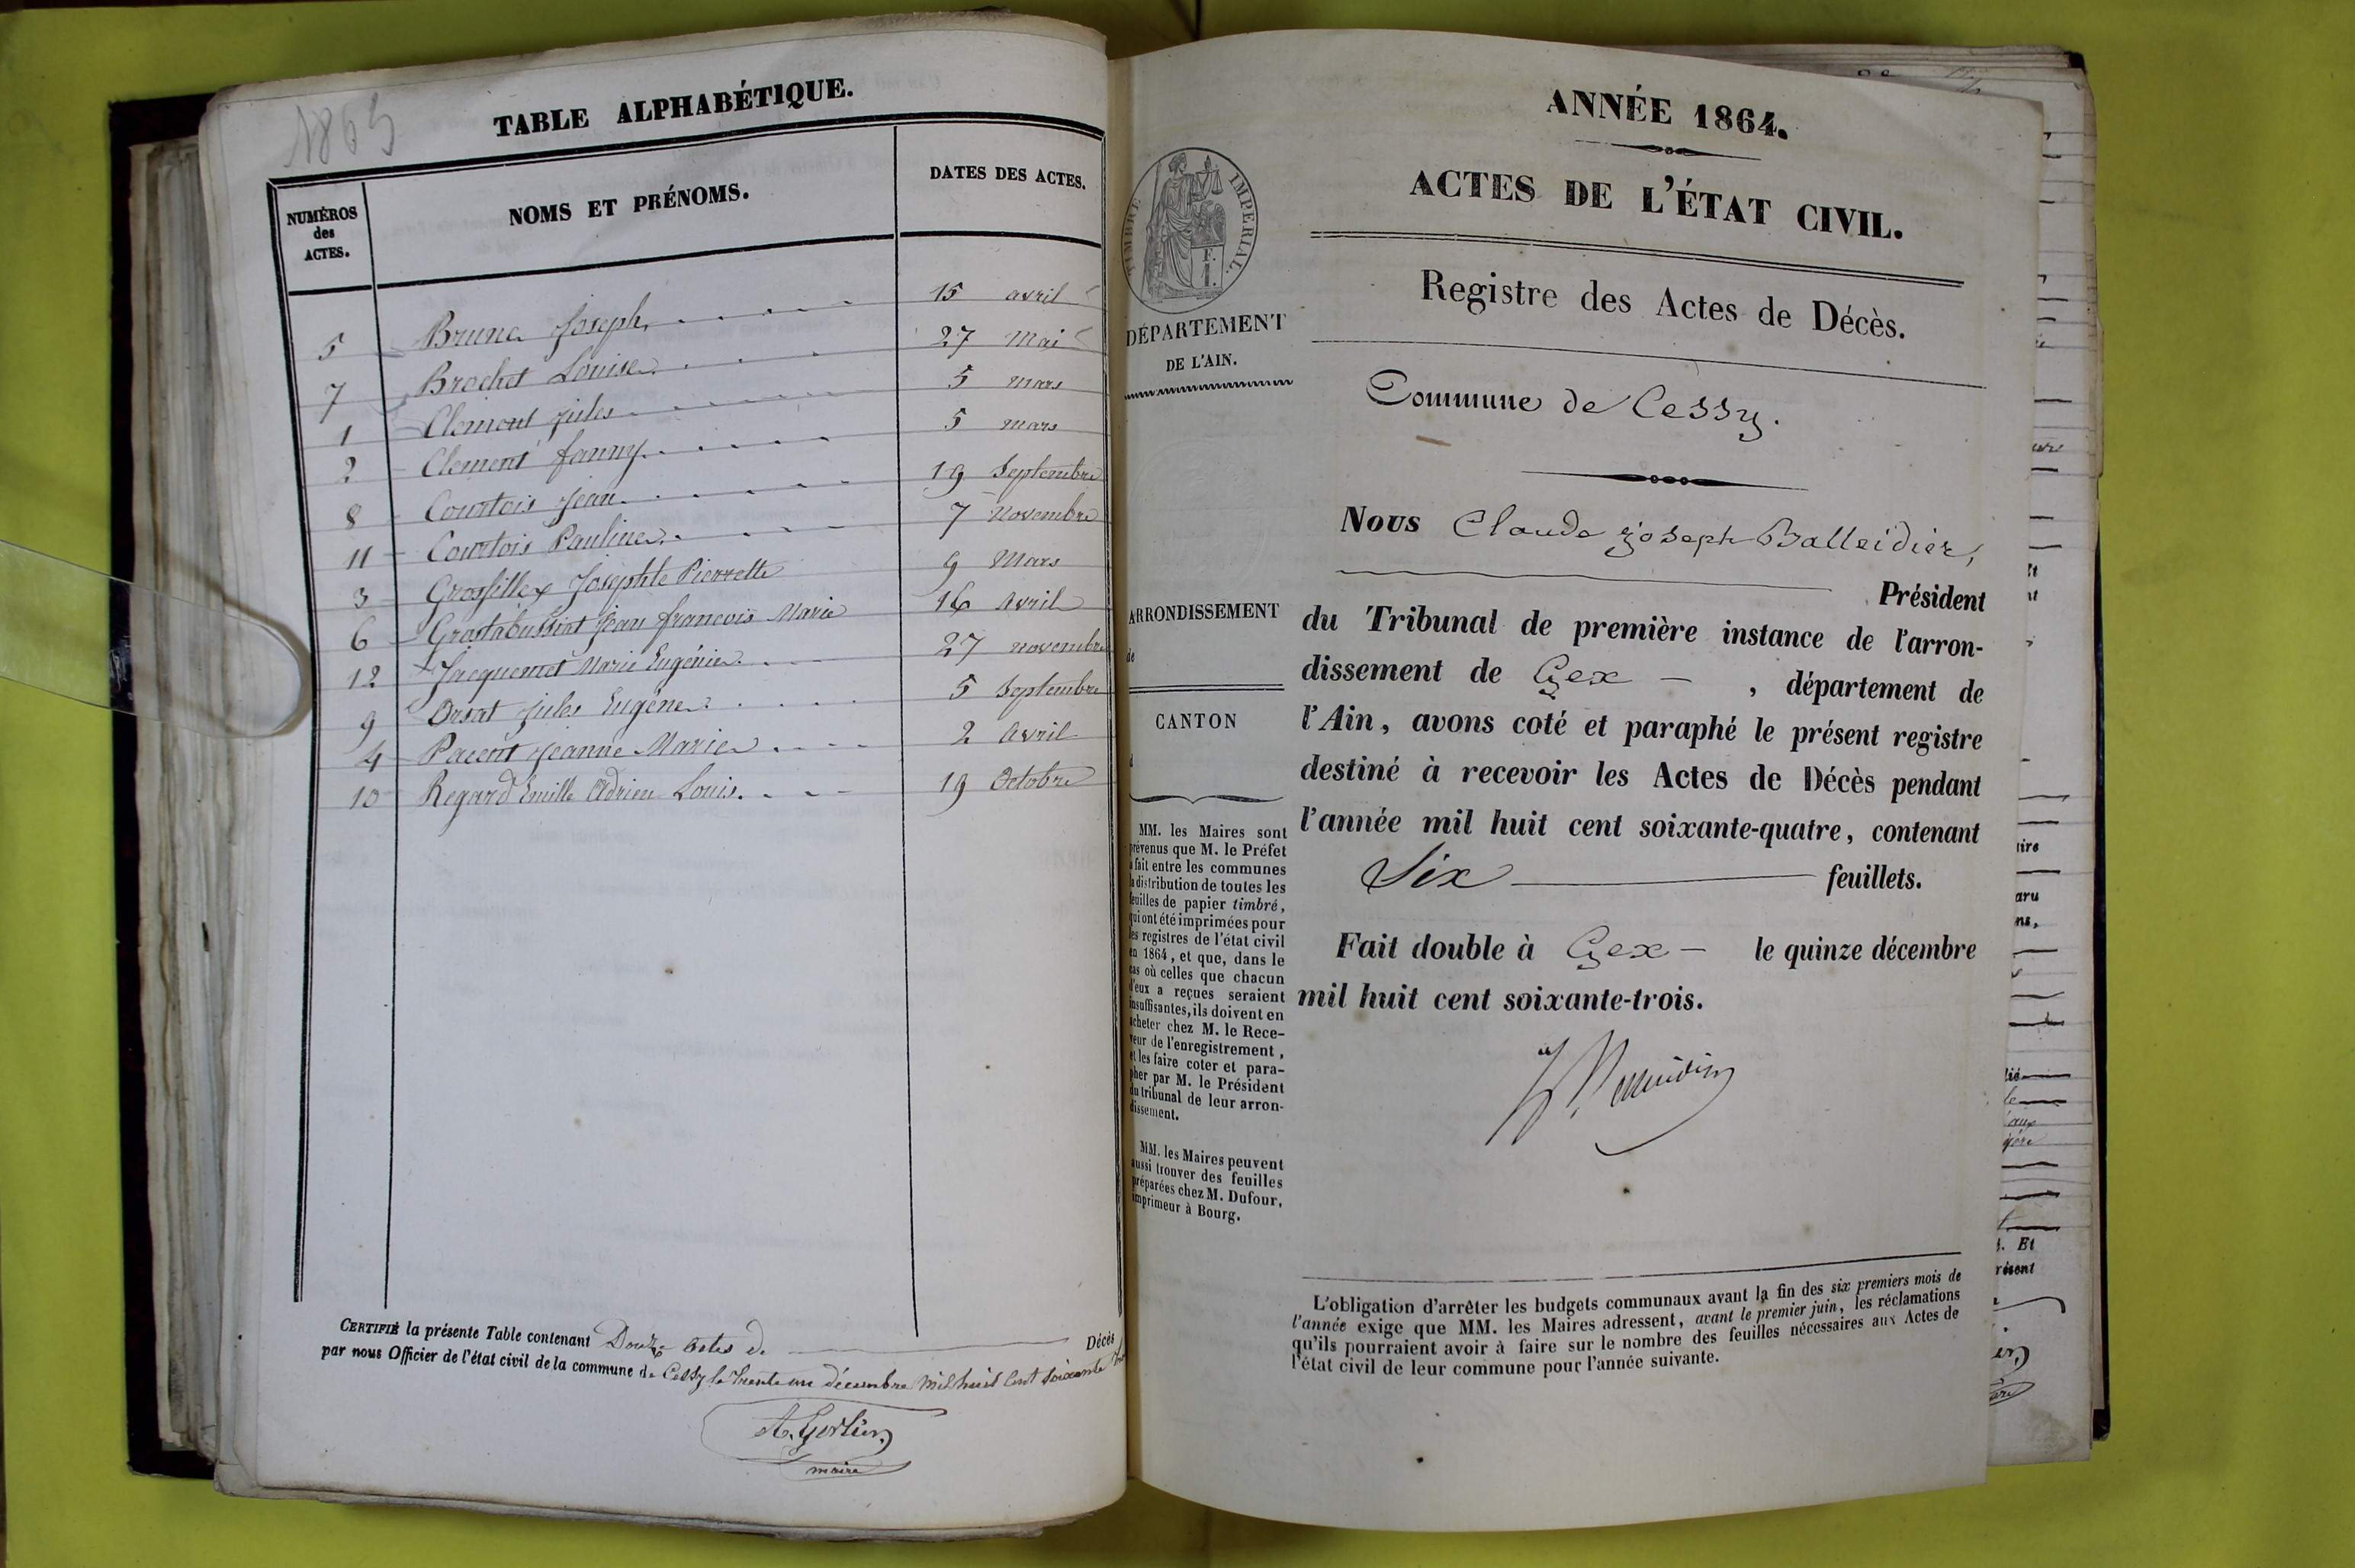 1863
TABLE ALPHABÉTIQUE.
NUMÉROS des ACTES. NOMS ET PRÉNOMS. DATES DES ACTES.
5 Brunet Joseph 15 avril
7 Brochet Louise 27 Mai
1 Clement Jules 5 mars
2 Clement fanny 5 mars
8 Courtois Jean 19 Septembre
11 Courtois Pauline 7 Novembre
3 Grosfillex Josephte Pierrette 9 Mars
6 Grostabussiat Jean francois Marie 16 Avril
12 Jacquemet Marie Eugénie 27 novembre
9 Orsat Jules Eugène 5 Septembre
4 Pacent Jeanne Marie 2 Avril
10 Regard Emille Adrien Louis. 19 Octobre
CERTIFIÉ la présente Table contenant Douze actes de Décès
par nous Officier de l'état civil de la commune de Cessy le trente un décembre mil huit cent soixante
A. Gerlier
maire
ANNÉE 1864.
ACTES DE L'ÉTAT CIVIL.
TIMBRE IMPERIAL.
F.
1.
DÉPARTEMENT
DE L'AIN.
Registre des Actes de Décès.
Commune de Cessy.
Nous Claude Joseph Balleidier,
Président
ARRONDISSEMENT
de
du Tribunal de première instance de l'arron-
dissement de Gex , département de
l'Ain, avons coté et paraphé le présent registre
destiné à recevoir les Actes de Décès pendant
l'année mil huit cent soixante-quatre, contenant
Six feuillets.
Fait double à Gex le quinze décembre
mil huit cent soixante-trois.
CANTON
d
MM. les Maires sont
prévenus que M. le Préfet
a fait entre les communes
la distribution de toutes les
feuilles de papier timbré,
qui ont été imprimées pour
les registres de l'état civil
en 1864, et que, dans le
cas où celles que chacun
d'eux a reçues seraient
insuffisantes, ils doivent en
acheter chez M. le Rece-
veur de l'enregistrement,
et les faire coter et para-
pher par M. le Président
du tribunal de leur arron-
dissement.
MM. les Maires peuvent
aussi trouver des feuilles
préparées chez M. Dufour,
imprimeur à Bourg.
L'obligation d'arrêter les budgets communaux avant la fin des six premiers mois de
l'année exige que MM. les Maires adressent, avant le premier juin, les réclamations
qu'ils pourraient avoir à faire sur le nombre des feuilles nécessaires aux Actes de
l'état civil de leur commune pour l'année suivante.